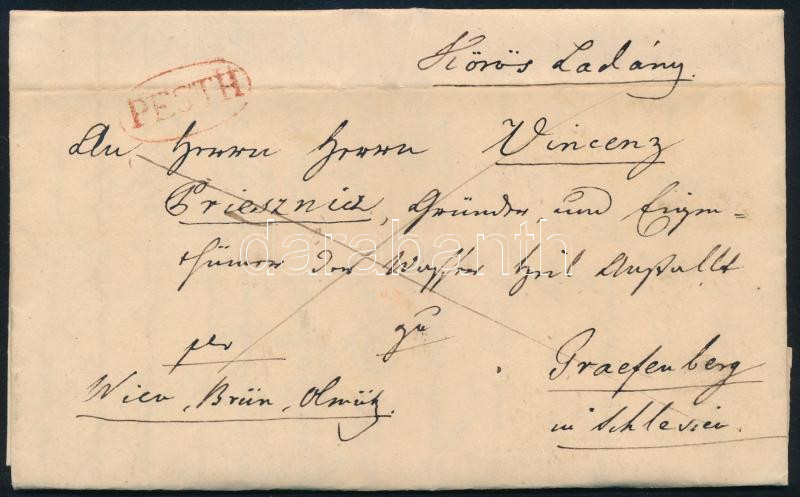 Körös Ladány.
PESTH
An Herrn Herrn Vincenz
Priesznicz, Gründer und Eigen=
thümer der Wasser Heil Anstallt
per zu
Graefenberg
Wien, Brün, Olmütz.
in Schlesien.
darabanth